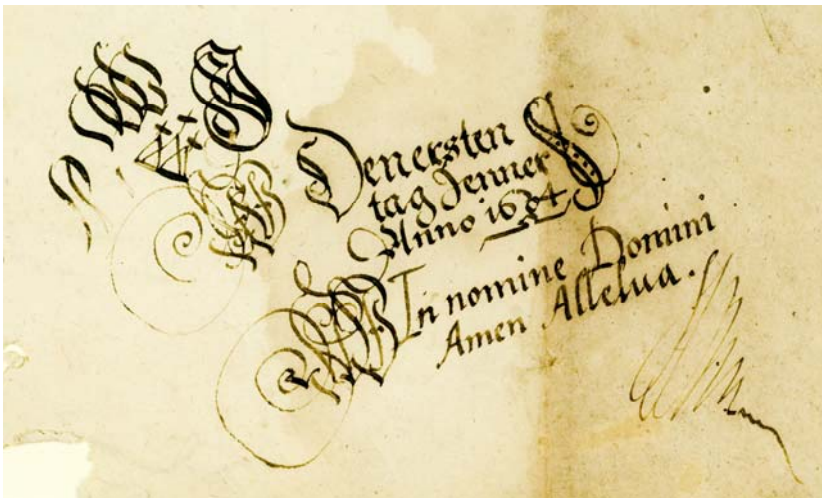 Denersten
tag Jenner
Anno 1634
In nomine Domini
Amen Allelua.